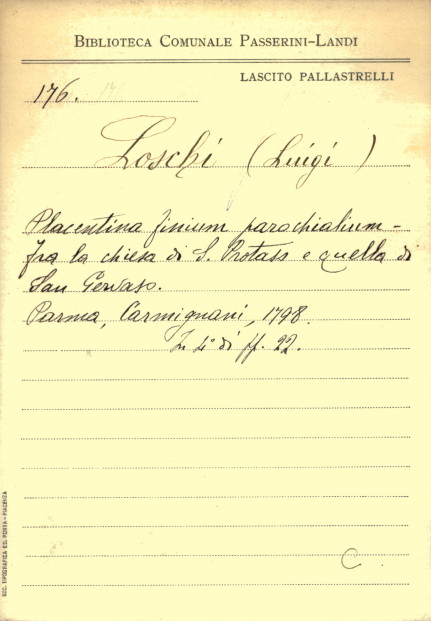 BIBLIOTECA COMUNALE PASSERINI-LANDI
LASCITO PALLASTRELLI
176.
Loschi (Luigi)
Placentina finium parochialium -
fra la chiesa di S. Protaso e quella di
San Gervaso.
Parma, Carmignani, 1798.
In 4° di ff. 22.
C
SOC. TIPOGRAFICA ED. PORTA - PIACENZA